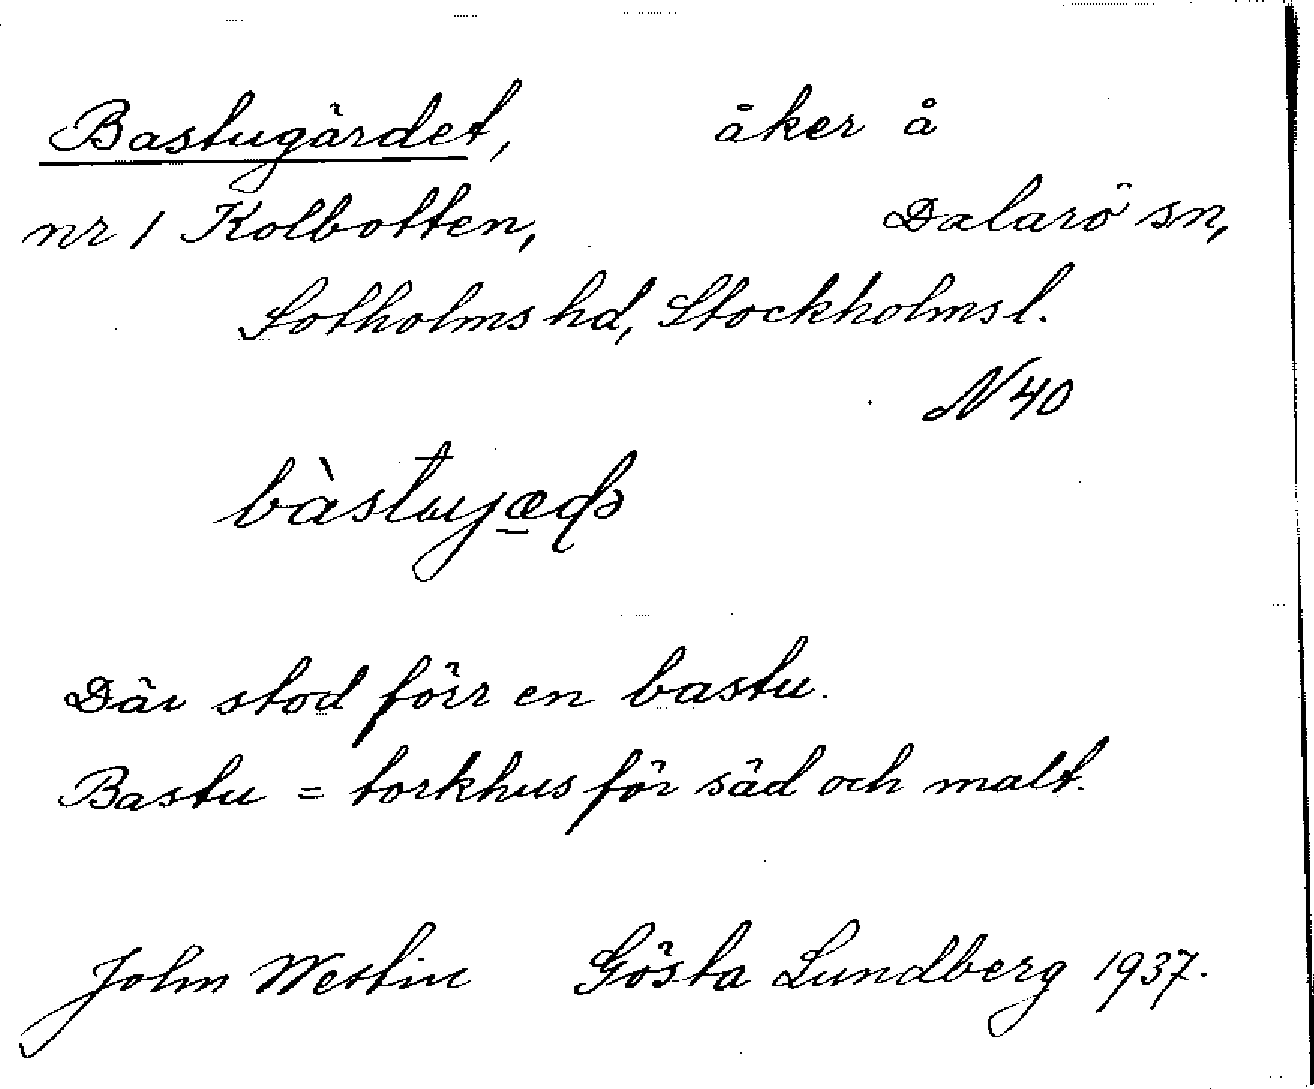 Bastugärdet, åker å
nr 1 Kolbotten, Dalarö sn,
Sotholms hd, Stockholms l.
N 40
Där stod förr en bastu.
Bastu = torkhus för säd och malt.
John Westin Gösta Lundberg 1937.